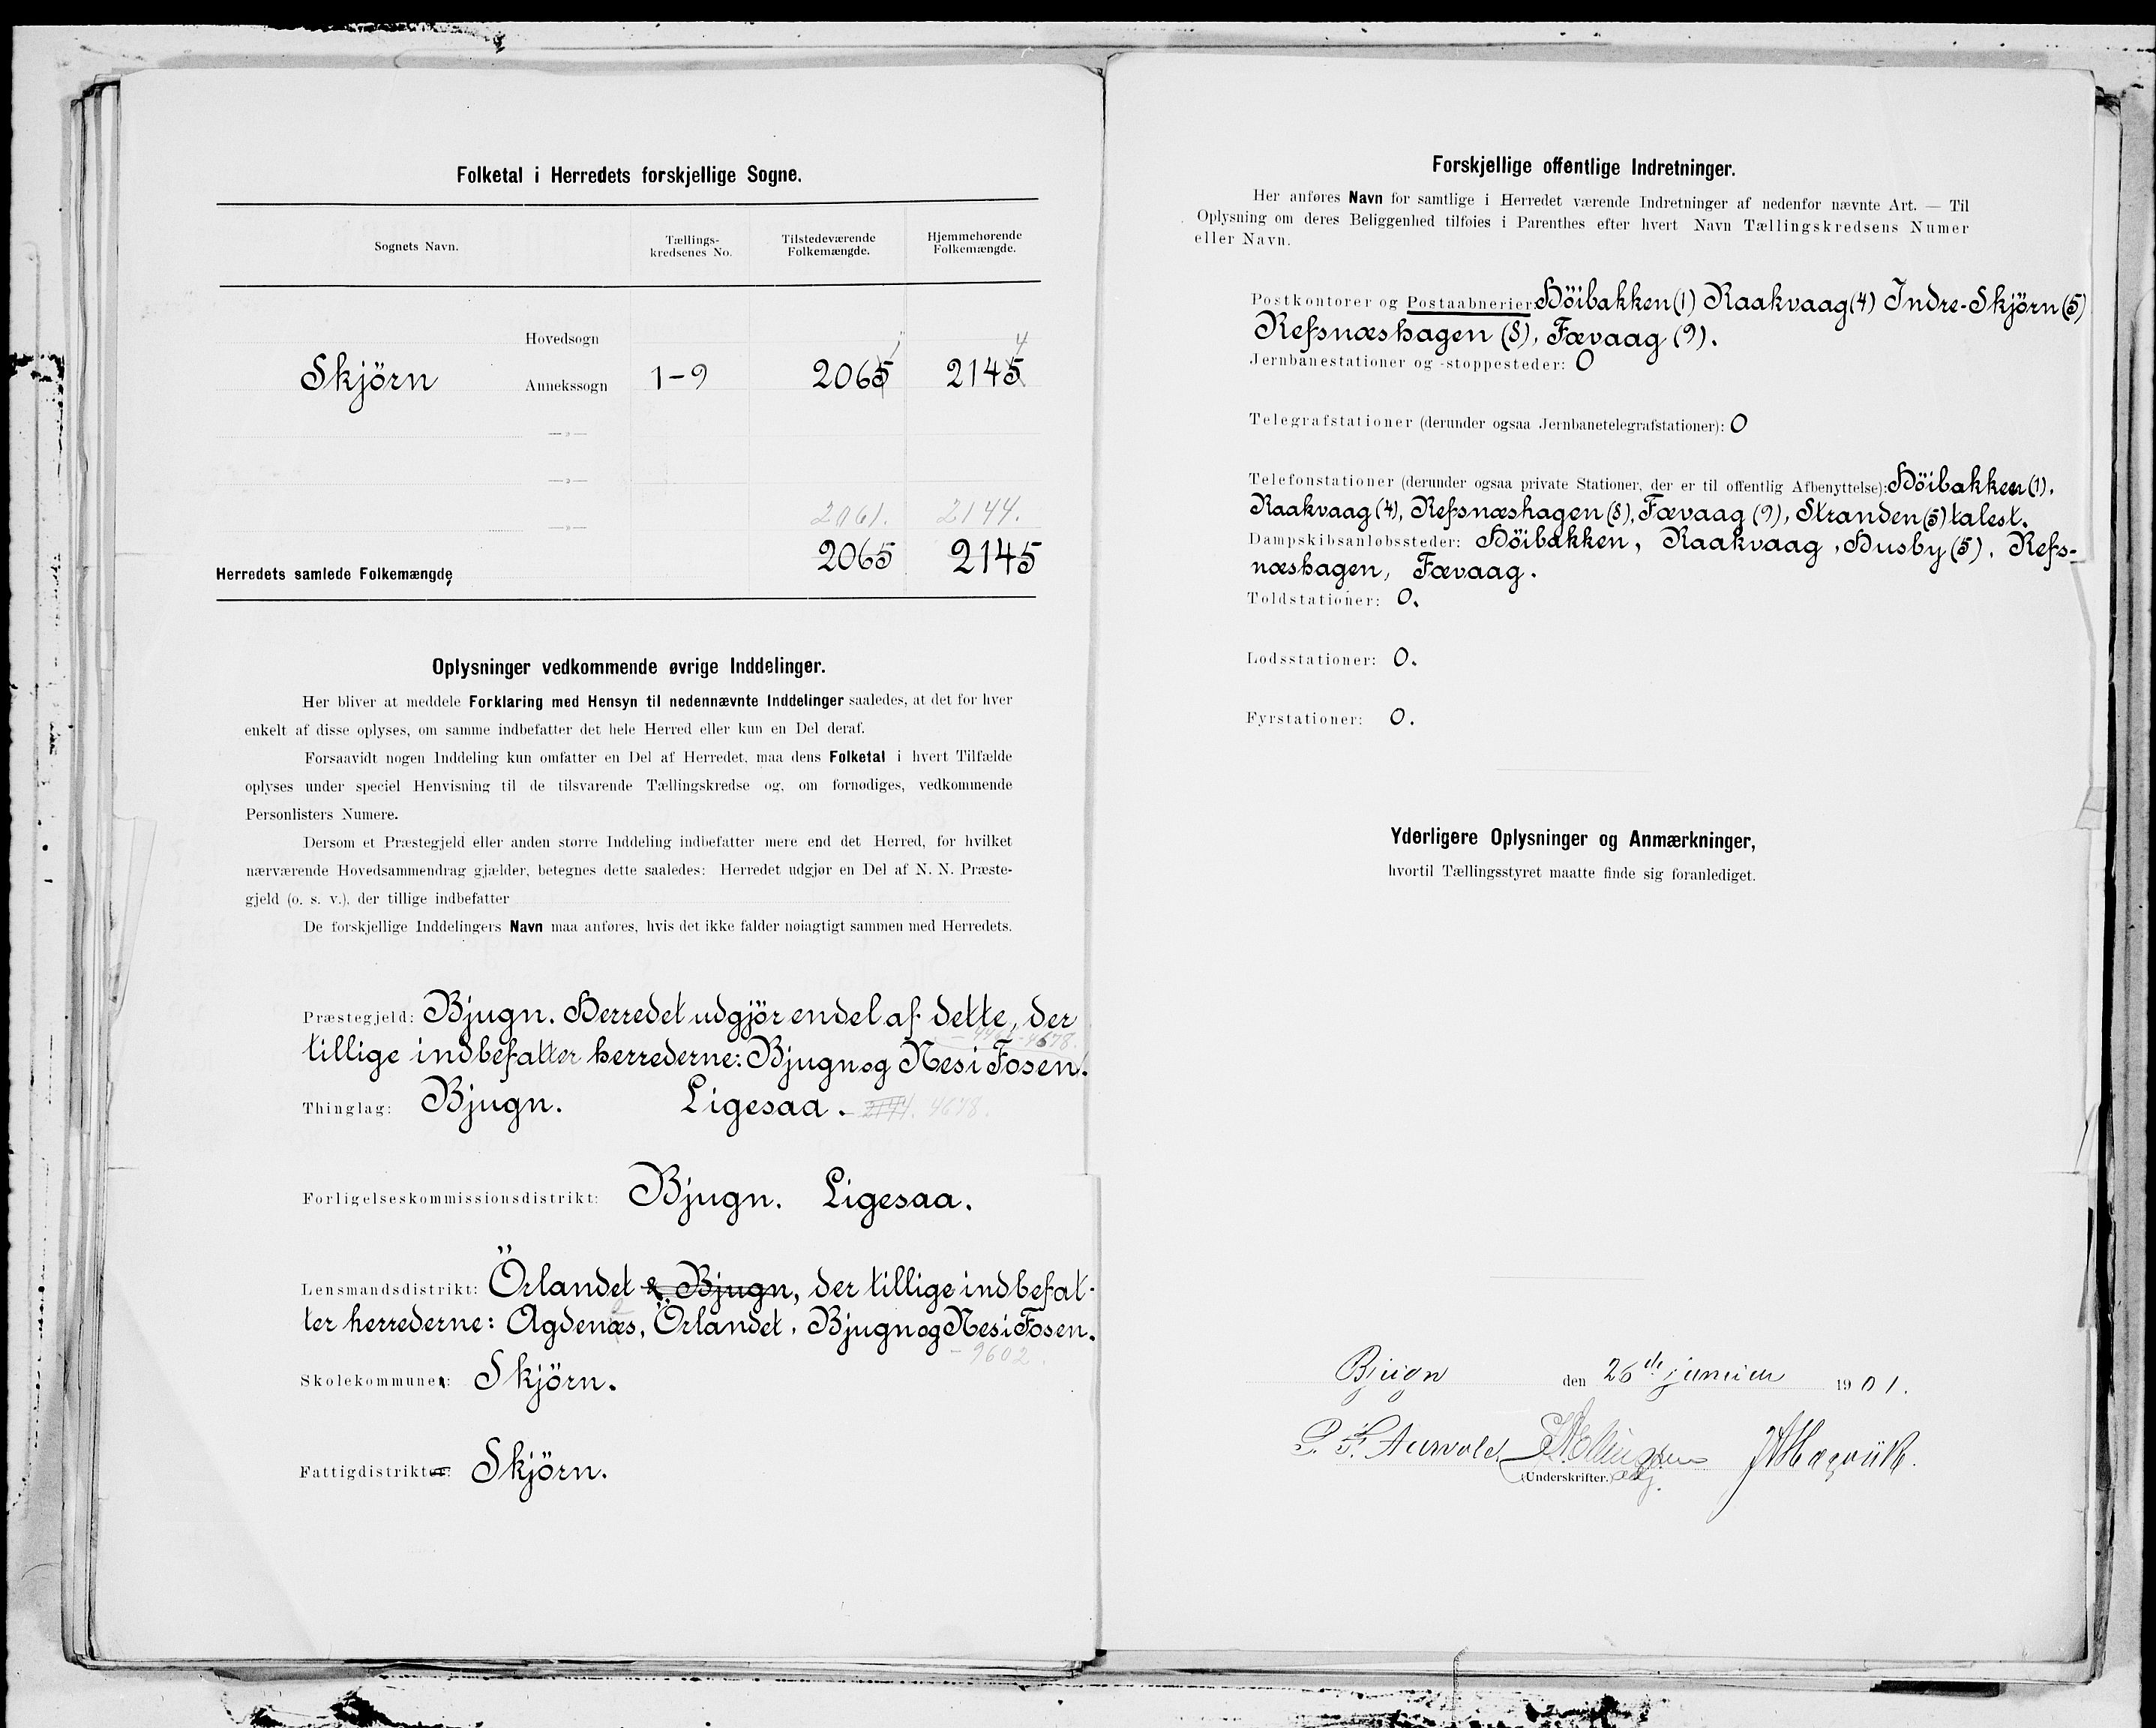 Folketal i Herredets forskjellige Sogne.
Sognets Navn.
Tællings-
kredsenes No.
Tilstedeværende
Folkemængde.
Hjemmehørende
Folkemængde.
Hovedsogn
1 4
Skjörn Annekssogn 1-9 2065 2145
—„—
—„—
2061. 2144.
—„—
Herredets samlede Folkemængde 2065 2145
Oplysninger vedkommende øvrige Inddelinger.
Her bliver at meddele Forklaring med Hensyn til nedennævnte Inddelinger saaledes, at det for hver
enkelt af disse oplyses, om samme indbefatter det hele Herred eller kun en Del deraf.
Forsaavidt nogen Inddeling kun omfatter en Del af Herredet, maa dens Folketal i hvert Tilfælde
oplyses under speciel Henvisning til de tilsvarende Tællingskredse og, om fornødiges, vedkommende
Personlisters Numere.
Dersom et Præstegjeld eller anden større Inddeling indbefatter mere end det Herred, for hvilket
nærværende Hovedsammendrag gjælder, betegnes dette saaledes: Herredet udgjør en Del af N. N. Præste-
gjeld (o. s. v.), der tillige indbefatter
De forskjellige Inddelingers Navn maa anføres, hvis det ikke falder nøiagtigt sammen med Herredets.
Præstegjeld: Bjugn. Herredet udgjör endel af dette, der
tillige indbefatter herrederne: Bjugn og Nes i Fosen.
Thinglag: Bjugn. Ligesaa. 4678.
Forligelseskommissionsdistrikt: Bjugn. Ligesaa.
Lensmandsdistrikt: Örlandet & Bjugn, der tillige indbefat-
ter herrederne: Agdenæs, Örlandet, Bjugn og Nes i Fosen.
- 9602.
Skolekommuner: Skjörn.
Fattigdistrikter: Skjörn.
Forskjellige offentlige Indretninger.
Her anføres Navn for samtlige i Herredet værende Indretninger af nedenfor nævnte Art. — Til
Oplysning om deres Beliggenhed tilføies i Parenthes efter hvert Navn Tællingskredsens Numer
eller Navn.
Postkontorer og Postaabnerier: Höibakken (1) Raakvaag (4) Indre-Skjörn (5)
Refsnæshagen (8), Fævaag (9).
Jernbanestationer og -stoppesteder: 0
Telegrafstationer (derunder ogsaa Jernbanetelegrafstationer): 0
Telefonstationer (derunder ogsaa private Stationer, der er til offentlig Afbenyttelse): Höibakken (1).
Raakvaag (4), Refsnæshagen (8), Fævaag (9), Stranden (5) talest.
Dampskibsanløbssteder: Höibakken, Raakvaag, Husby (5), Refs-
næshagen, Fævaag.
Toldstationer: 0.
Lodsstationer: 0.
Fyrstationer: 0.
Yderligere Oplysninger og Anmærkninger,
hvortil Tællingsstyret maatte finde sig foranlediget.
Bjugn den 26de januar 1901.
(Underskrifter.)